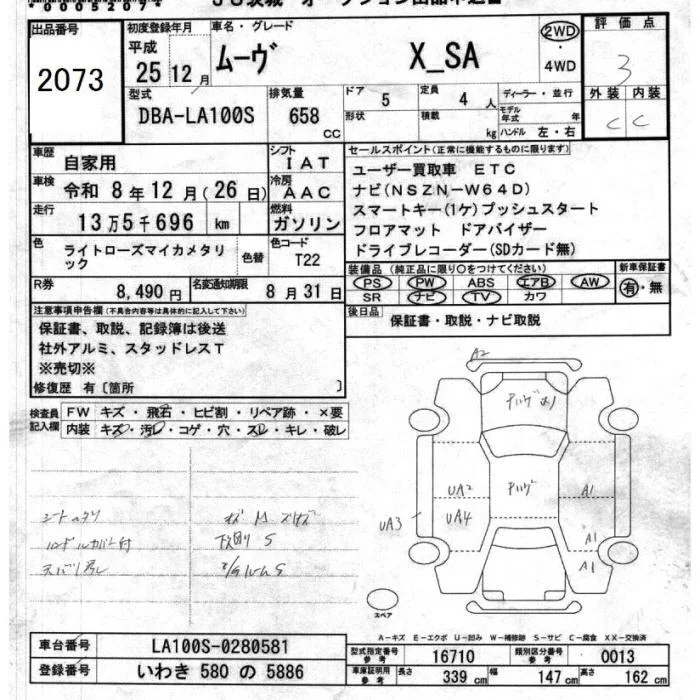 出品番号
2073
初度登録年月
平成
25 12 月
車名・グレード
ムーヴ
X_SA
2WD
・
4WD
評価点
3
外装 内装
C C
型式
DBA-LA100S
排気量
658
CC
ドア
5
形状
定員
4 人
積載
kg
ディーラー・並行
モデル
年式
年
ハンドル 左・右
車歴
自家用
車検
令和 8年12月(26日)
走行
13万5千696 km
色
ライトローズマイカメタリ
ック
色替
シフト
IAT
冷房
AAC
燃料
ガソリン
色コード
T22
R券
8,490円
名変通知期限
8月31日
セールスポイント(正常に機能するものに限ります)
ユーザー買取車 ETC
ナビ(NSZN-W64D)
スマートキー(1ケ)プッシュスタート
フロアマット ドアバイザー
ドライブレコーダー(SDカード無)
装備品(純正品に限り○をつけてください)
PS PW ABS エアB AW
SR ナビ TV カワ
新車保証書
有・無
後日品
保証書・取説・ナビ取説
注意事項申告欄(不具合内容等は具体的に記入して下さい)
保証書、取説、記録簿は後送
社外アルミ、スタッドレスT
※売切※
修復歴 有〔箇所 〕
検査員
記入欄
FW キズ・飛石・ヒビ割・リペア跡・×要
内装 キズ・汚レ・コゲ・穴・スレ・キレ・破レ
A2
UA2
UA4
UA3
A1
A1
A1
スペア
A-キズ E-エクボ U-凹み W-補修跡 S-サビ C-腐食 XX-交換済
車台番号
LA100S-0280581
登録番号
いわき 580 の 5886
型式指定番号
参考
16710
類別区分番号
参考
0013
車庫証明用
参考
長さ
339 cm
幅
147 cm
高さ
162 cm